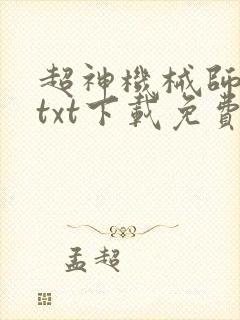 超神機械師
txt下載免費
孟超